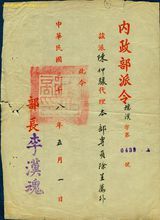 內政部派令
字第
號
0439
茲派陳仰驤代理本部專員除呈薦外
此令
部長李漢魂
中華民國
八年五月一日